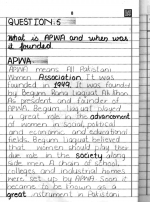 QUESTION:5
What is APWA and when was
it founded.
APWA:
APWA means All Pakistani
Women Association. It was
founded in 1949. It was
Begum Rana Liaquat Ali Khan.
As president and founder of
APWA, Begum Liaquat played
a great role in the advancement
of women in social, political
and economic and educational
fields. Begum Liaquat believed
that women should play their
due role in the society along
side men. A chain of school,
colleges and industrial homes
were set up by APWA. Soon it
became to be known as a
great instrument in Pakistan